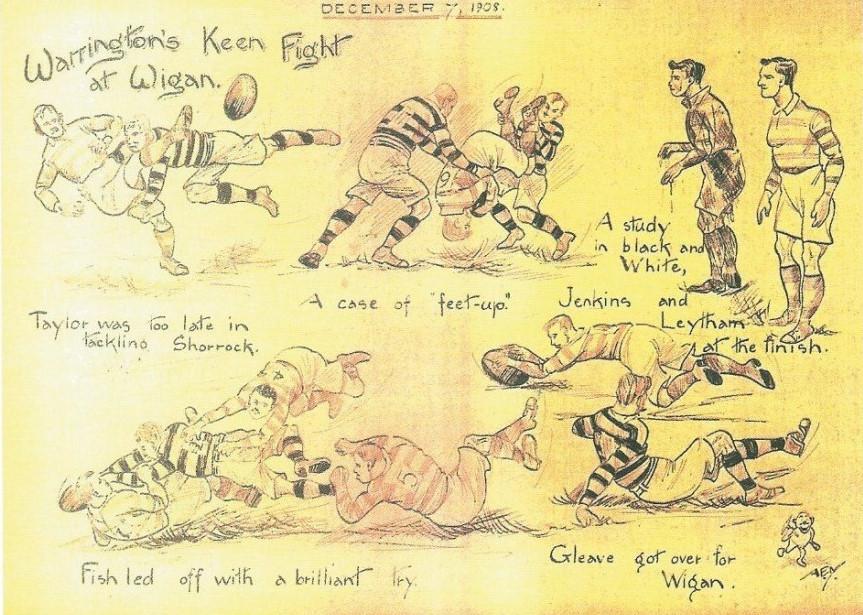 DECEMBER 7, 1908.
Warrington's Keen Fight
at Wigan.
6
Taylor was too late in
tackling Shorrock.
A case of "feet-up."
A study
in black and
White,
Jenkins and
Leytham
at the finish.
4
5
Fish led off with a brilliant try.
Gleave got over for
Wigan.